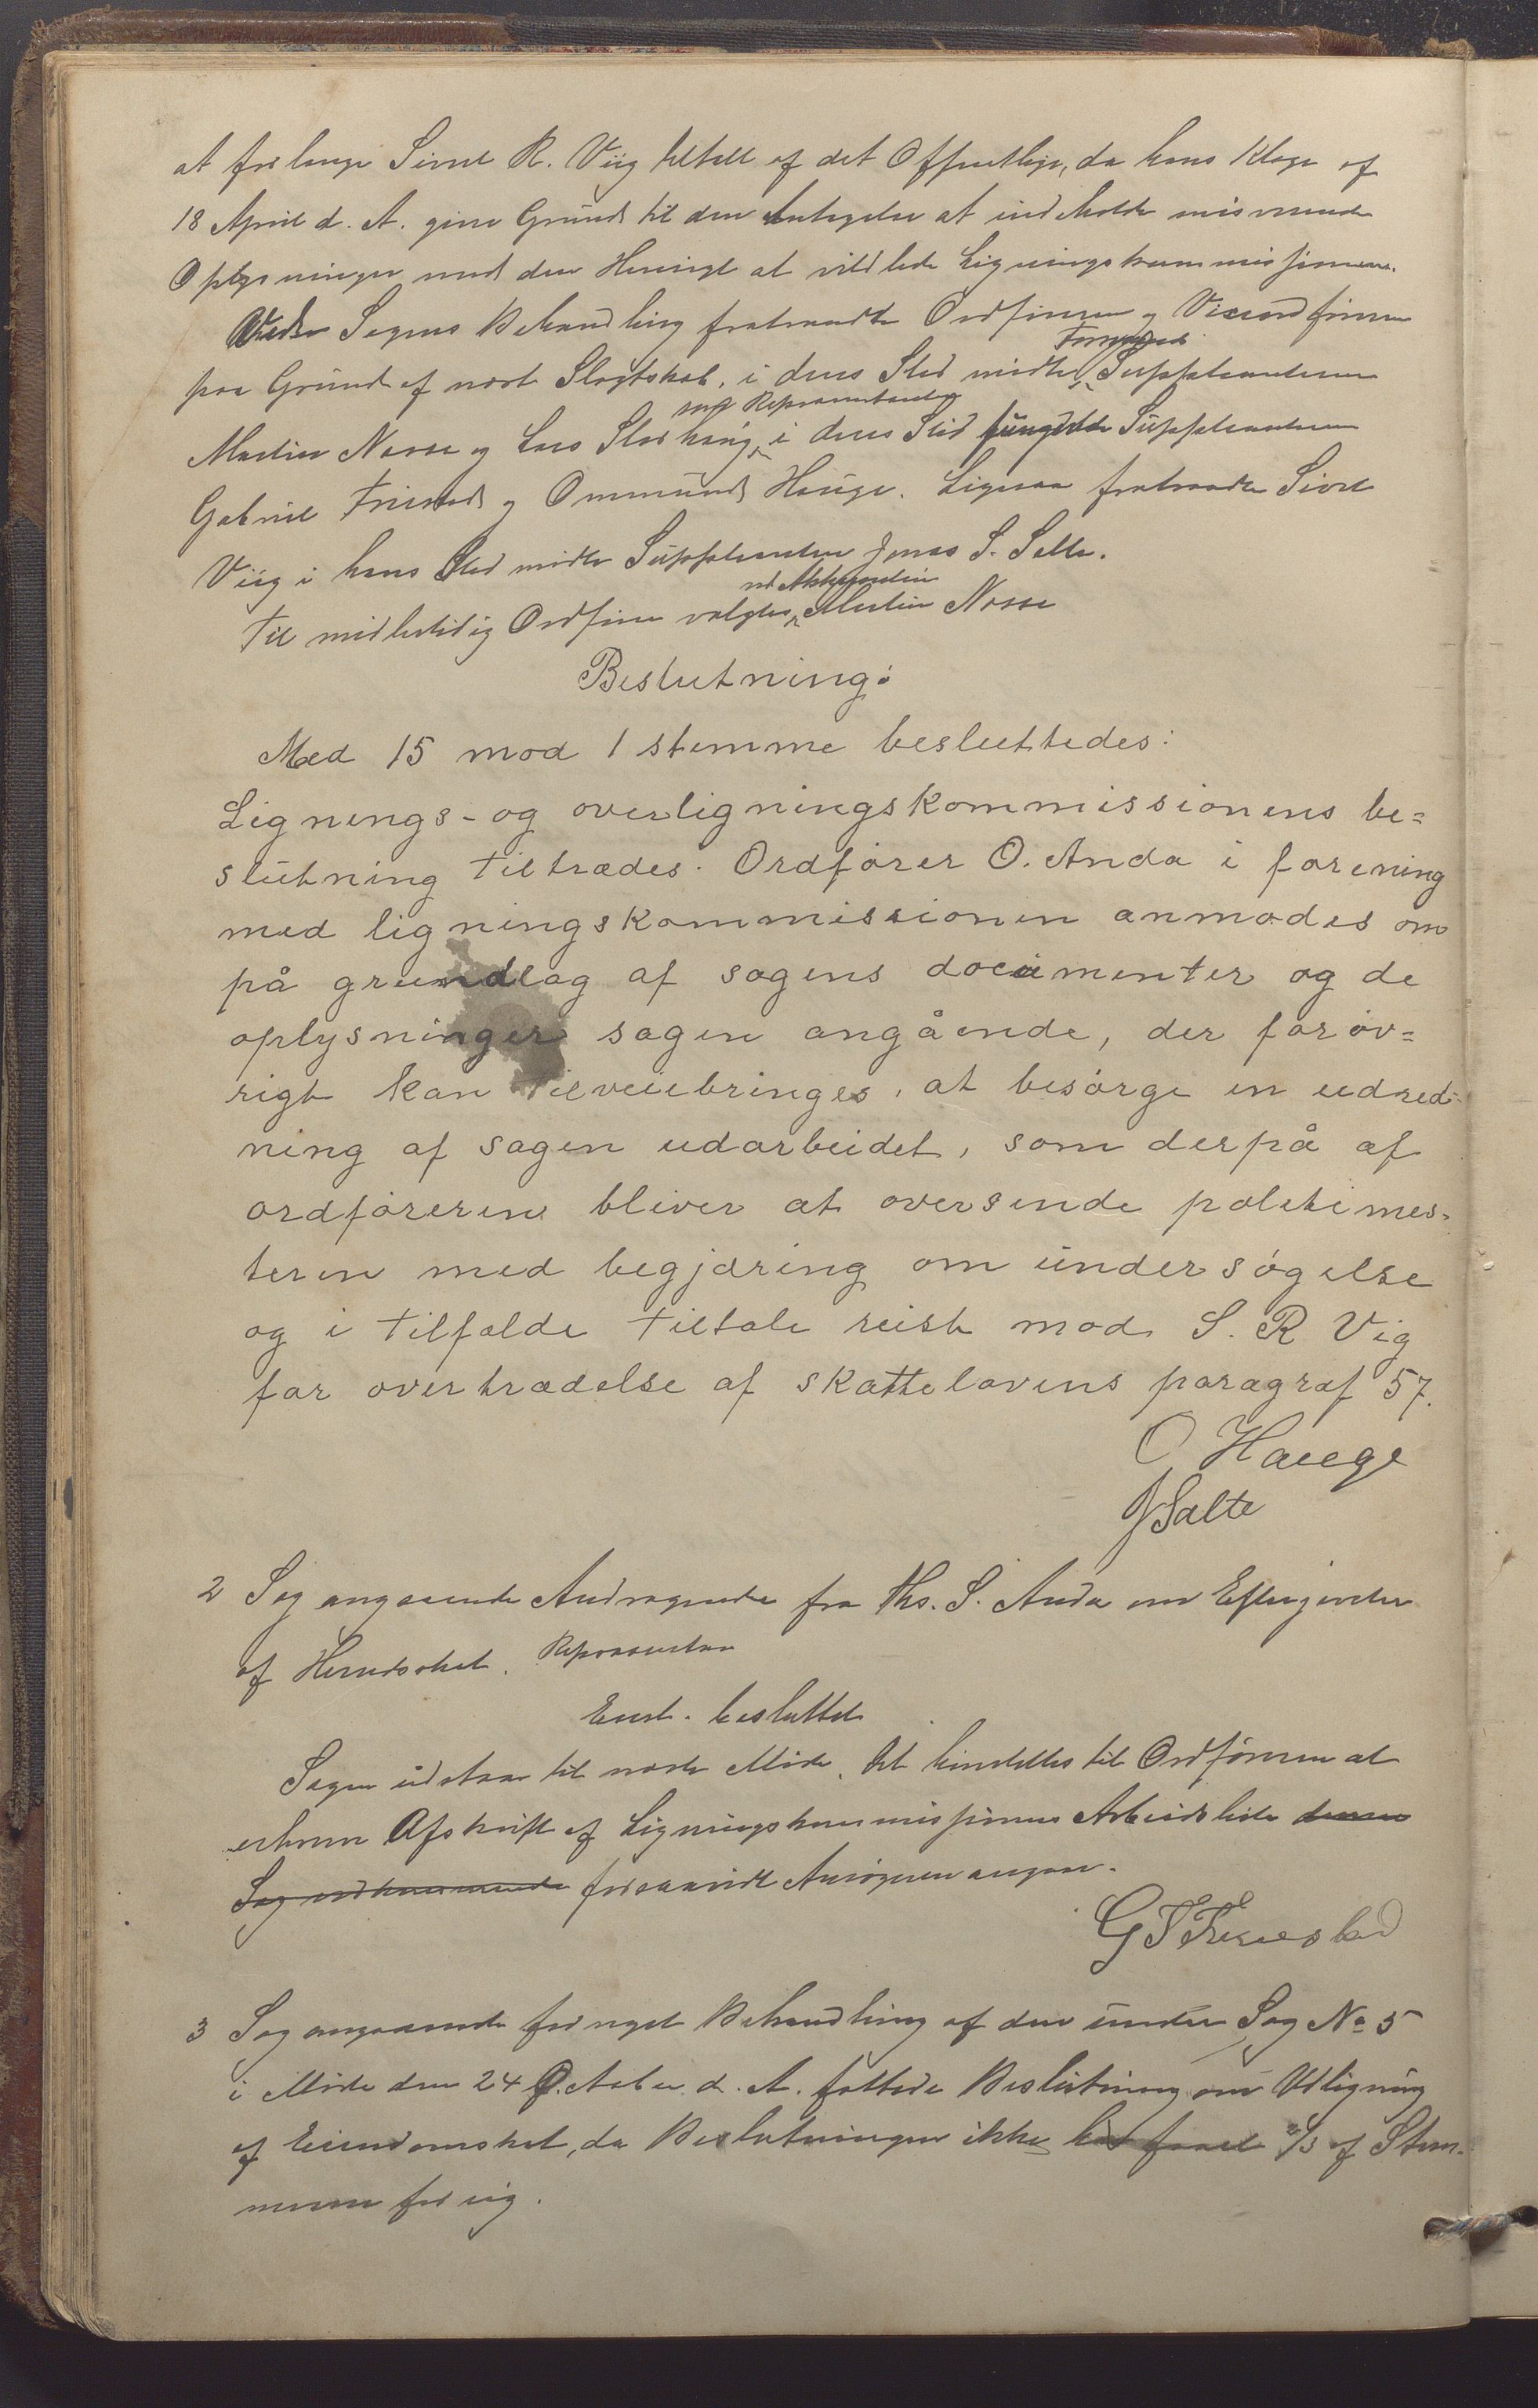 at forlange Sivert R. Viig tiltalt af det Offentlige, da hans Klage af
18 April d. A. giver Grund til den Antagelse at indeholde misvisende
Oplysninger med den Hensigt at vildlede Ligningskommissionen.
Under Sagens Behandling fratraadte Ordføreren og Viceordføreren
paa Grund af nært Slægtskab, i deres Sted mødte Suppleanterne
som Repræsentanter
Martin Næsse og Lars i deres Sted fungerte Suppleanterne
Gabriel Friestad og Ommund Hauge. Ligesaa fratraadte Sivert
Viig i hans Sted mødte Suppleanten Jonas S. Salte.
ved Akklamation
Til midlertidig Ordfører valgtes Martin Næsse
Beslutning:
Med 15 mod 1 stemme besluttedes:
Lignings- og overligningskommissionens be=
slutning tiltrædes. Ordfører O. Anda i forening
med ligningskommissionen anmodes om
på grundlag af sagens documenter og de
oplysninger sagen angående, der forøv=
rigt kan tilveiebringes, at besørge en udred-
ning af sagen udarbeidet, som derpå af
ordføreren bliver at oversende politimes-
teren med begjæring om undersøgelse
og i tilfælde tiltale reist mod S. R Vig
for overtrædelse af skattelovens paragraf 57.
O Hauge
J Salte
2 Sag angaaende Andragende fra Ths. S. Anda om Eftergivelse
af Herredsskat.
Enst. besluttet
Sagen udstaar til næste Møde. Det henstilles til Ordføreren at
erhverve Afskrift af Ligningskommissionens Arbeidsliste denne
Sag vedkommende forsaavidt Ansøgeren angaar.
G S Friestad
3 Sag angaaende fornyet Behandling af den under Sag No 5
i Møde den 24 October d. A. fattede Beslutning om Udligning
af Eiendomsskat, da Beslutningen ikke har faaet 2/3 af Stem-
merne for sig.